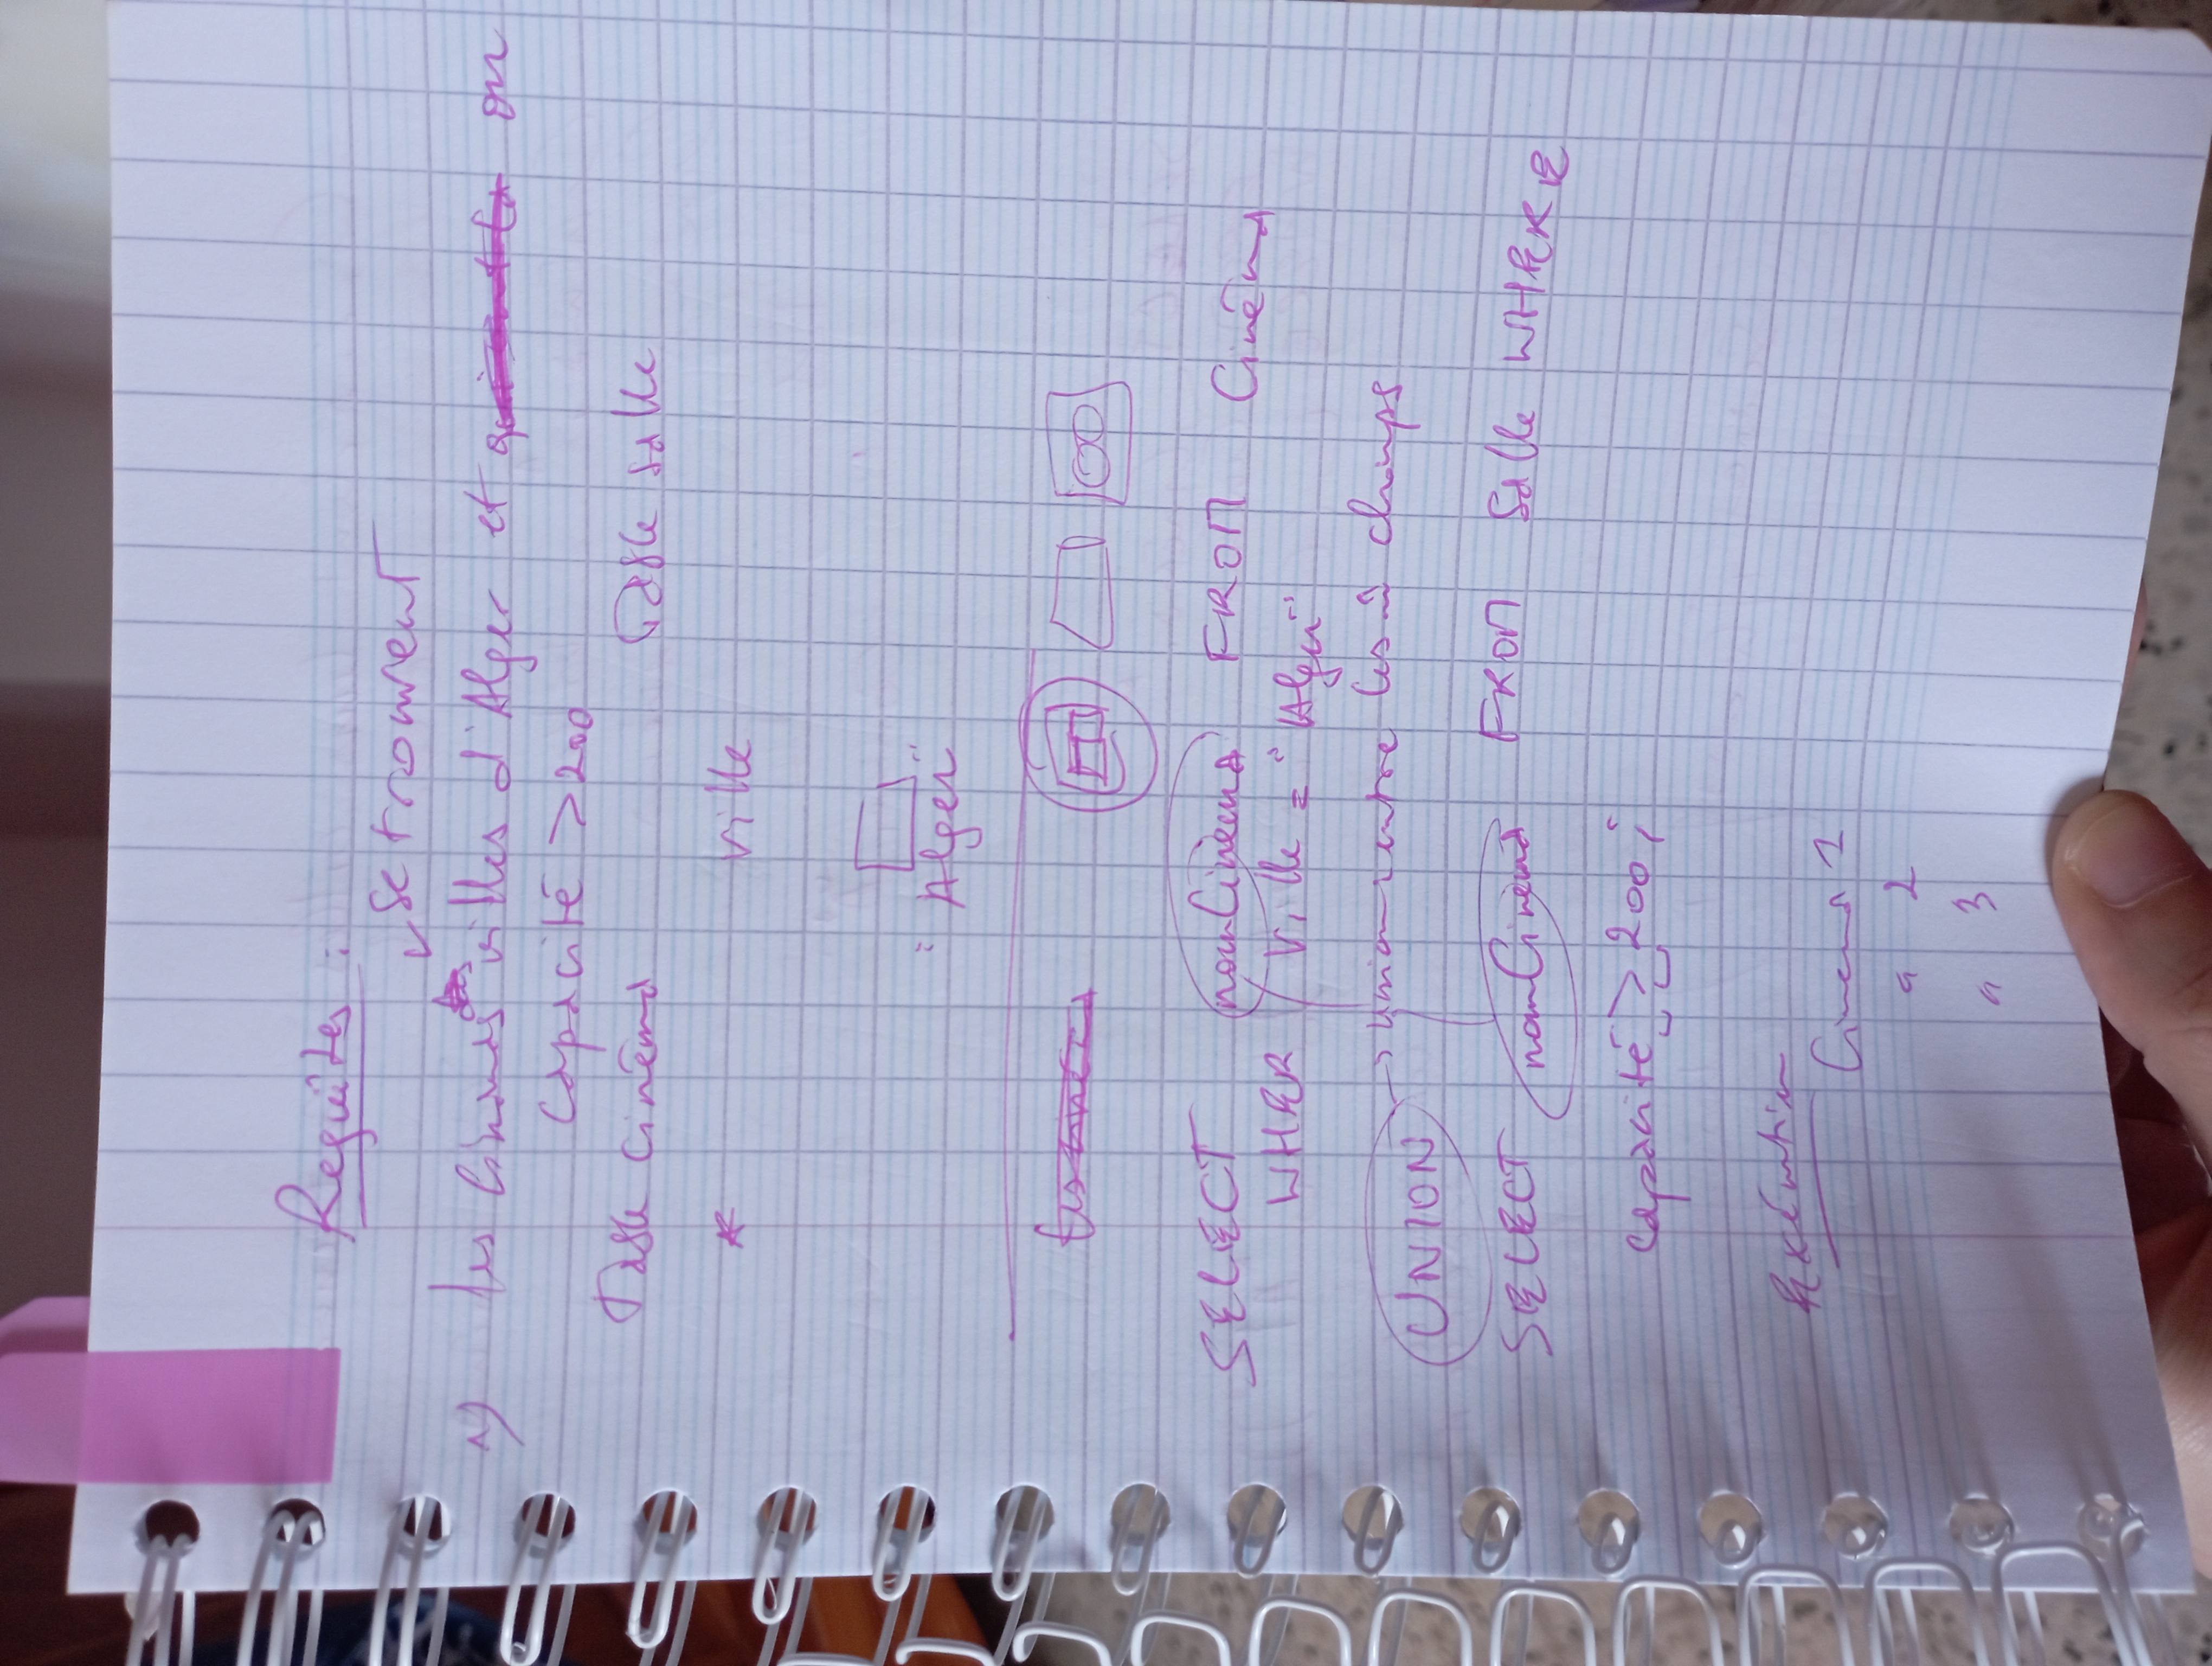 Requêtes :
se trouvent
1) les Cinémas villes d'Alger et ou
capacité > 200
Table cinéma Table salle
* ville
"Alger"
SELECT nomCinéma FROM Cinéma
WHER Ville = "Alger"
UNION → union entre les 2 champs
SELECT nomCinéma FROM Salle WHERE
capacité > 200;
Exécution
Cinema 1
" 2
" 3